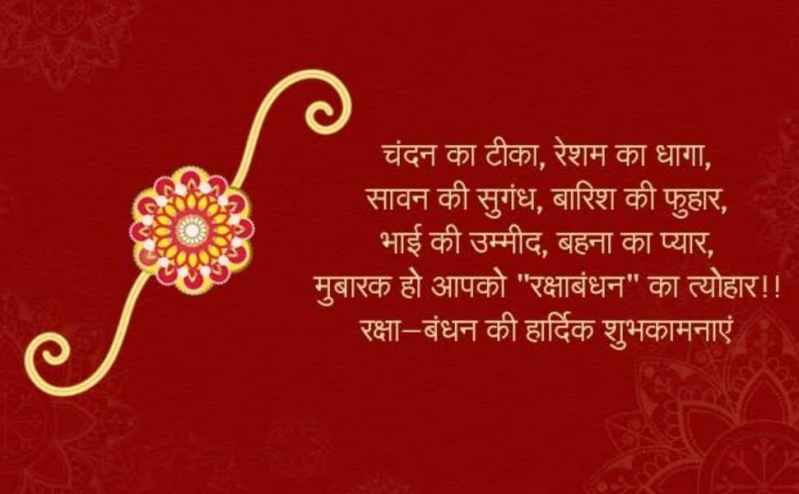 चंदन का टीका, रेशम का धागा,
सावन की सुगंध, बारिश की फुहार,
भाई की उम्मीद, बहना का प्यार,
मुबारक हो आपको "रक्षाबंधन" का त्योहार!!
रक्षा–बंधन की हार्दिक शुभकामनाएं